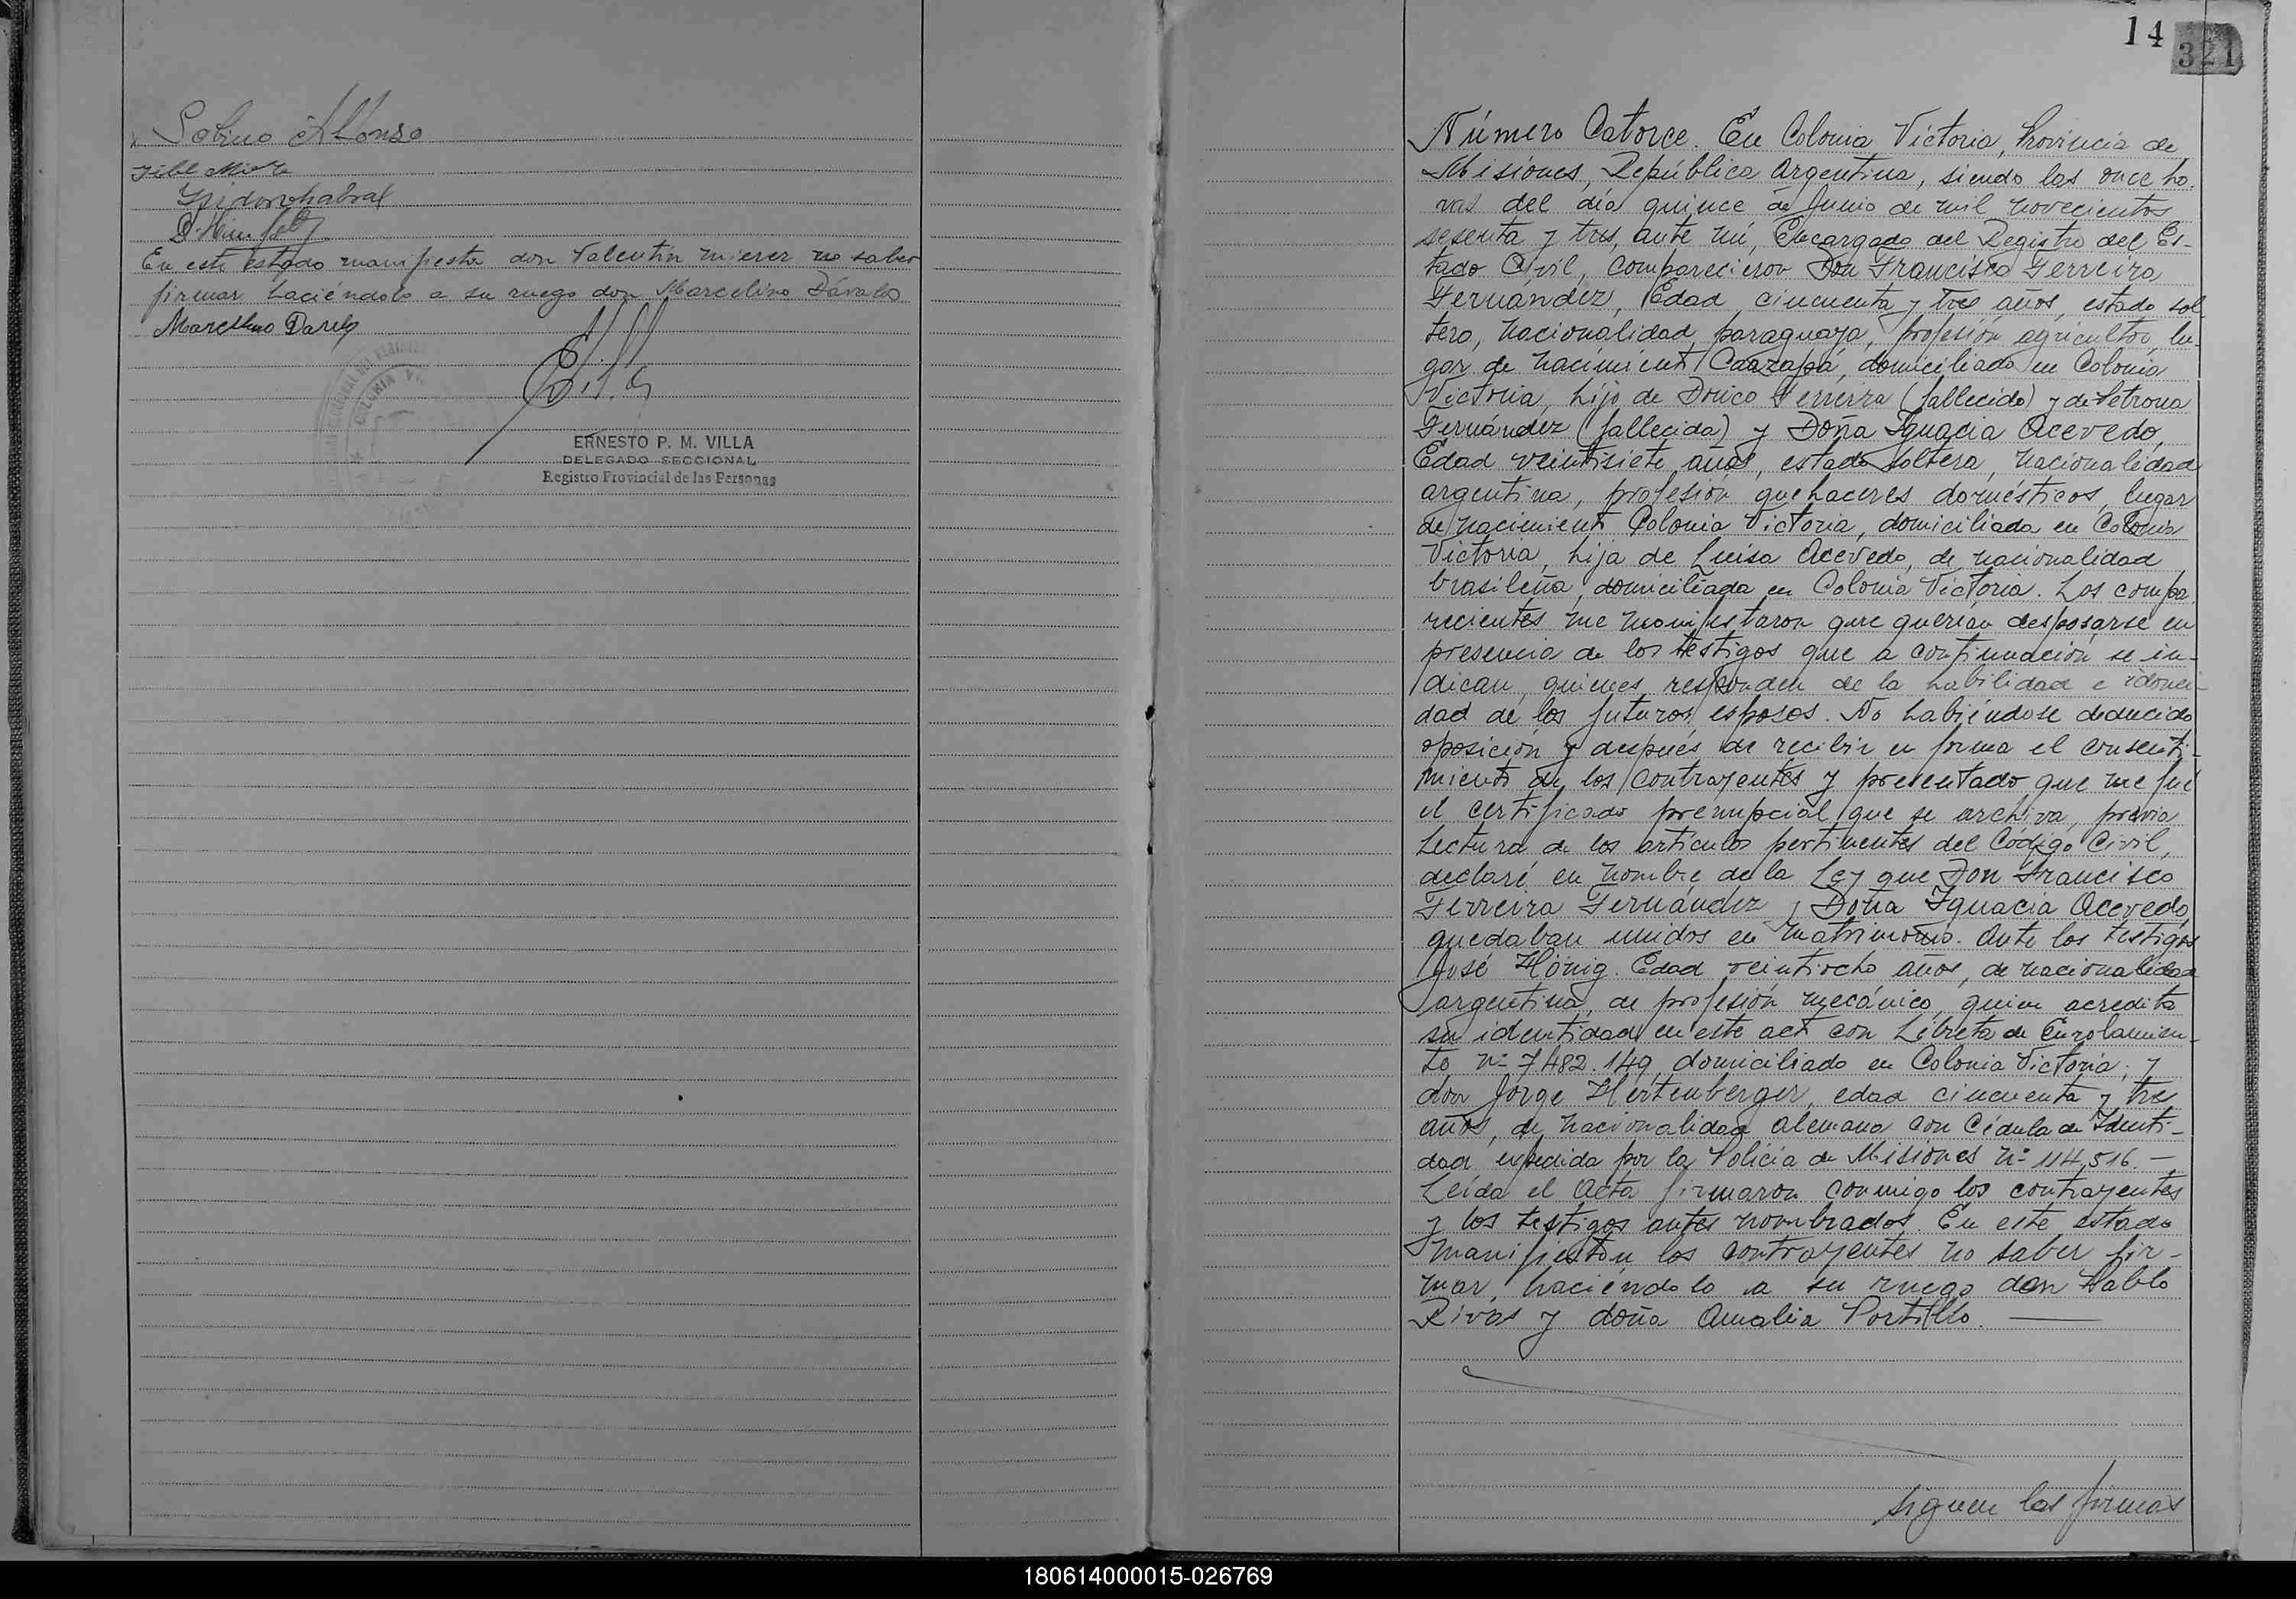 Sabino Alfonso
Ysidoro Cabral
En este estado manifiesta don Valentin Mierer no saber
firmar haciéndolo a su ruego don Marcelino Dávalos
Marcelino Davalos
COLONIA
ERNESTO P. M. VILLA
DELEGADO SECCIONAL
Registro Provincial de las Personas
14
321
Número Catorce. En Colonia Victoria, Provincia de
Misiones, República Argentina, siendo las once ho-
ras del día quince de Junio de mil novecientos
sesenta y tres, ante mí, Encargado del Registro del Es-
tado Civil, comparecieron Don Francisco Ferreira
Fernández, Edad cincuenta y tres años, estado sol-
tero, nacionalidad paraguaya, profesión agricultor, lu-
gar de nacimiento Caazapá, domiciliado en Colonia
Victoria, hijo de Ferreira (fallecido) y de Petrona
Fernández (fallecida) y Doña Ignacia Acevedo,
Edad veintisiete años, estado soltera, nacionalidad
argentina, profesión quehaceres domésticos, lugar
de nacimiento Colonia Victoria, domiciliada en Colonia
Victoria, hija de Luisa Acevedo, de nacionalidad
brasileña, domiciliada en Colonia Victoria. Los compa
recientes me manifestaron que querían desposarse en
presencia de los testigos que a continuación se in-
dican, quienes responden de la habilidad e idonei-
dad de los futuros esposos. No habiéndose deducido
oposición y después de recibir en forma el consenti-
miento de los contrayentes y presentado que me fué
el certificado prenupcial que se archiva, previa
Lectura de los artículos pertinentes del Código Civil,
declaré en nombre de la Ley que Don Francisco
Ferreira Fernández y Doña Ignacia Acevedo,
quedaban unidos en matrimonio. Ante los testigos
José Hönig. Edad veintiocho años, de nacionalidad
argentina, de profesión mecánico, quien acredita
su identidad en este acto con Libreta de Enrolamien-
to nº 7482.149, domiciliado en Colonia Victoria; y
don Jorge Hertenberger, edad cincuenta y tres
años, de nacionalidad alemana con Cédula de Identi-
dad expedida por la Policía de Misiones nº 114.516. —
Leída el Acta firmaron conmigo los contrayentes
y los testigos antes nombrados. En este estado
manifiestan los contrayentes no saber fir-
mar, haciéndolo a su ruego don Pablo
Rivas y doña Amalia Portillo. —
Siguen las firmas
180614000015-026769